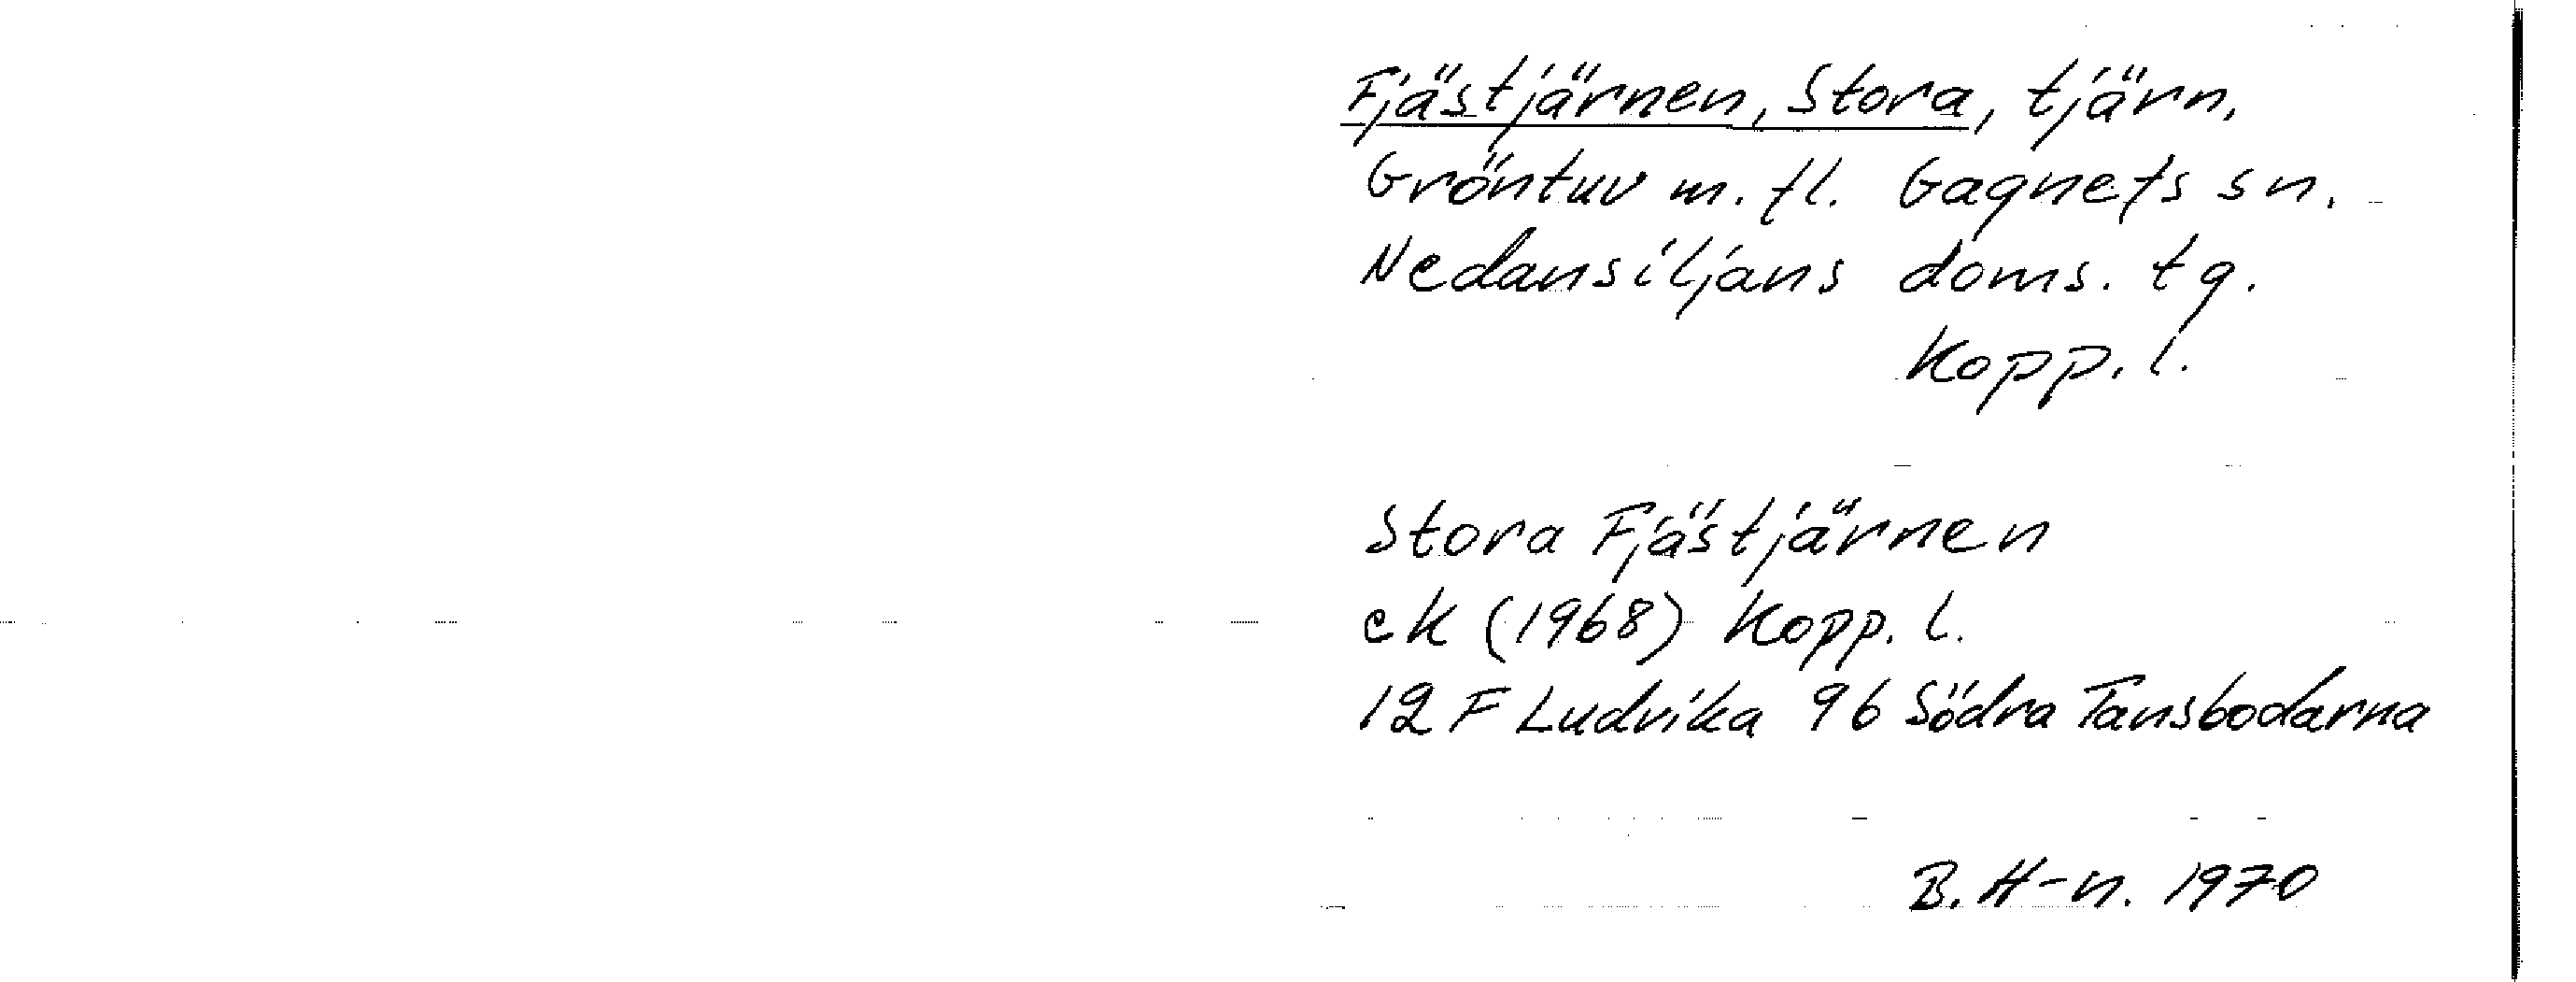 Fjästjärnen, Stora, tjärn,
Gröntuv m. fl. Gagnefs sn.
Nedansiljans doms. tg.
Kopp. l.
Stora Fjästjärnen
ek (1968) Kopp. l.
12 F Ludvika 9b Södra Tansbodarna
B. H-n. 1970